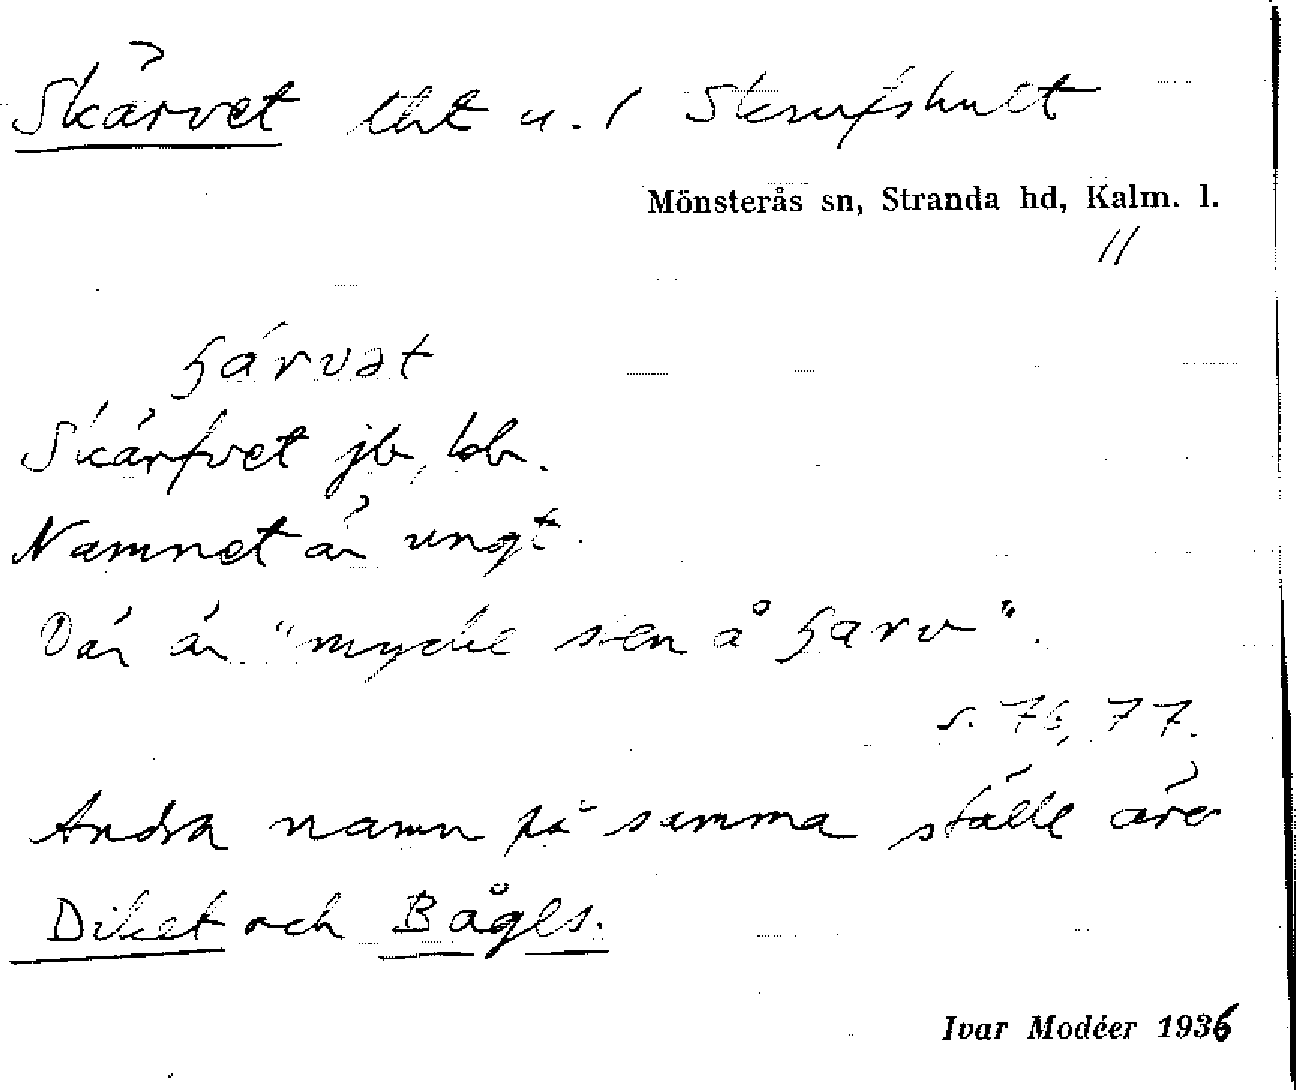 Skärvet lht u. / Skrufshult
Mönsterås sn, Stranda hd, Kalm. l.
//
ʂárvət
Skärfvet jb, kb.
Namnet är ungt.
Där är "mycke sten å ʂarv".
s. 76, 77.
Andra namn på samma ställe äro
Diket och Bågls.
Ivar Modéer 1936